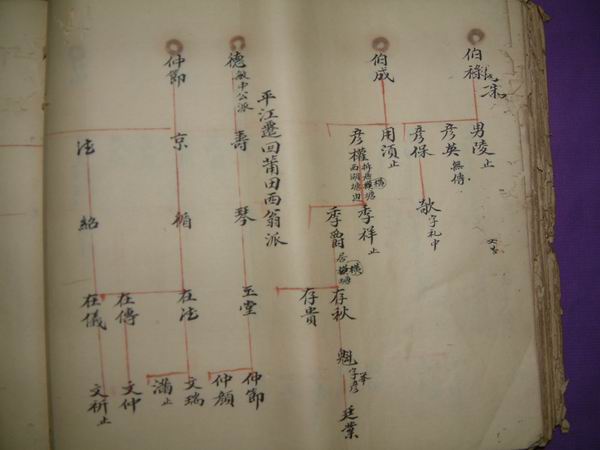 伯祿
男陵止
彥英無傳
彥保
字礼中
伯成
用須止
彥權
季祥止
季爵
居橫塘
存秋
存貴
魁字彥
廷業
平江遷回莆田西翁派
德敏中公派
壽
琴
玉堂
仲節
仲顏
仲節
京
循
在法
在傳
文瑞
滿止
文仲
法
紹
在儀
文祈止